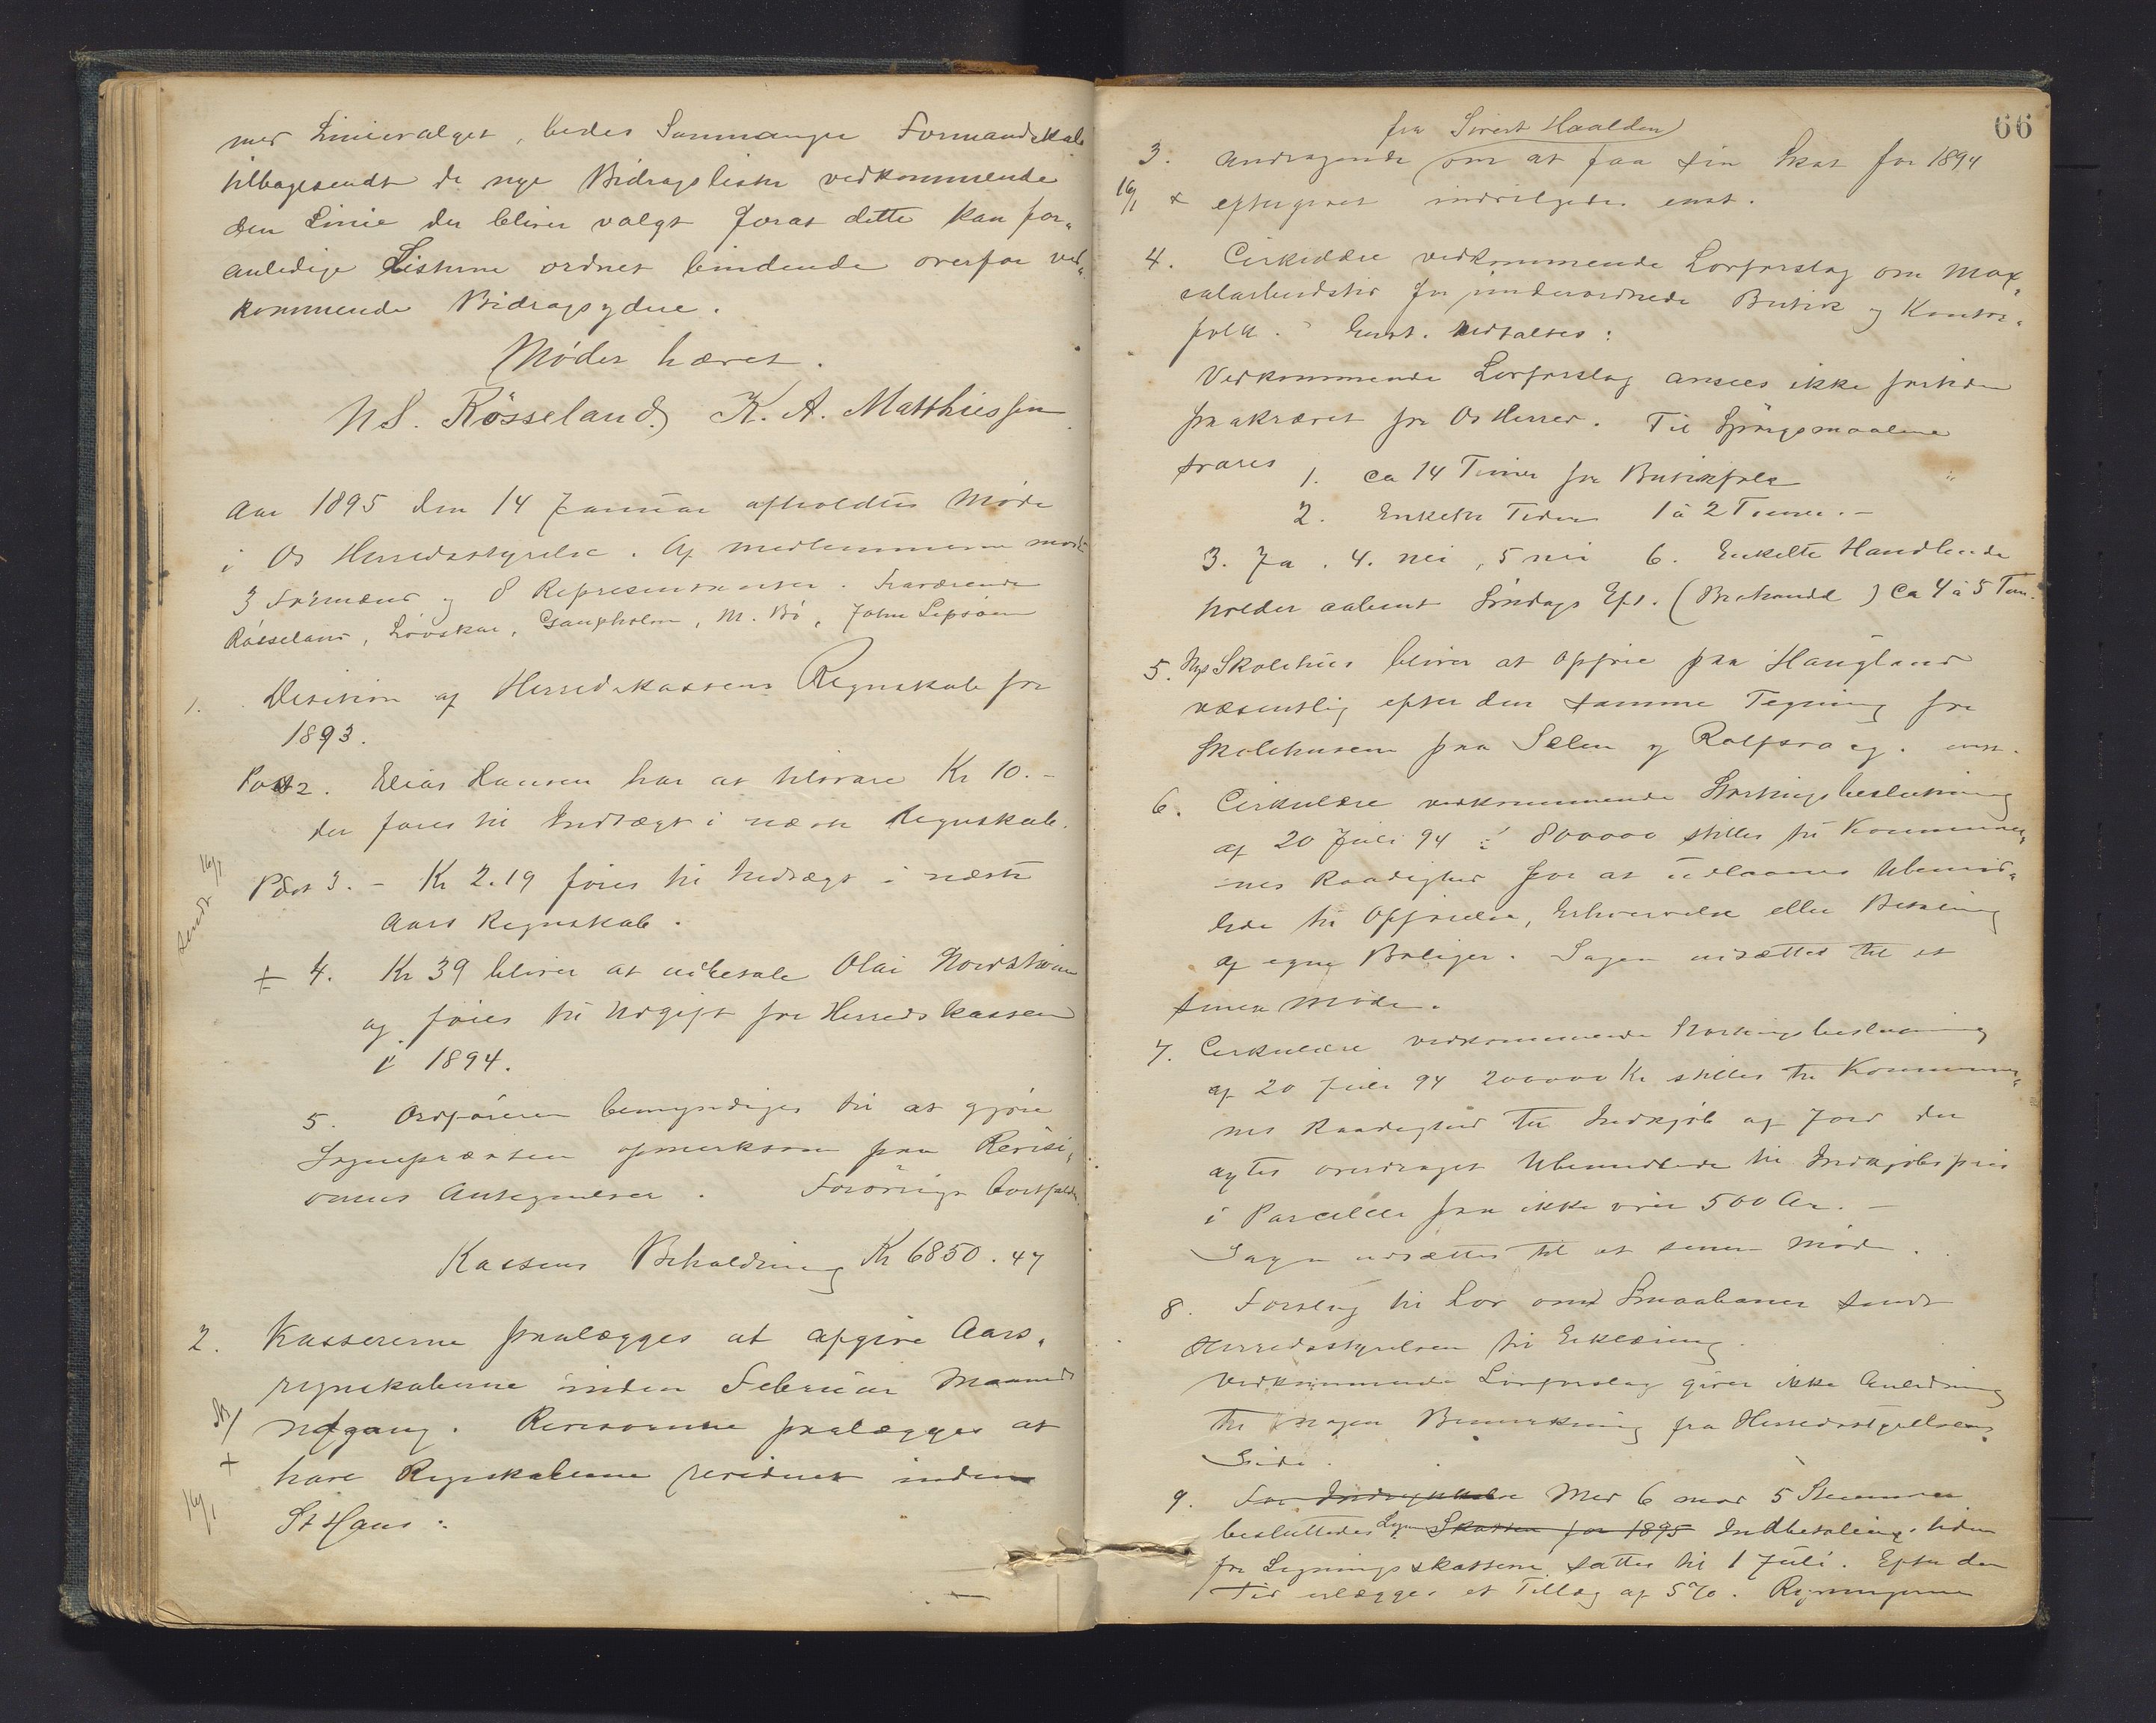 med Linievalget, bedes Samnanger Formandskab
tilbagesendt de nye Bidragslister vedkommende
den Linie der bliver valgt forat dette kan for„
anledige Listerne ordnet bindende overfor ved„
kommende Bidragsydere.
Mødet hævet.
N S. Rösseland. K. A. Matthiessen
Aar 1895 den 14 Januar afholdtes Møde
i Os Herredsstyrelse. Af medlemmerne mødte
3 Formænd og 8 Repræsentanter. Fraværende
Røsseland, Lövskar, Gaasholm, M. Bö, John Lepsöen
1. Desision af Herredskassens Regnskab for
1893.
Post 2. Elias Hansen har at tilsvare Kr 10.-
der føres til Indtægt i næste Regnskab.
Sendt 16/1
Post 3. - Kr 2.19 føres til Indtægt i næste
Aars Regnskab.
+ 4. Kr 39 bliver at udbetale Olai Nordström
og føies til Udgift for Herredskassen
i 1894.
5. Ordføreren bemyndiges til at gjøre
Sognepræsten opmerksom paa Revisi„
onens Antegnelser. Forövrigt bortfalder
Kassens Beholdning Kr 6850.47
2. Kassererne paalægges at afgive Aars„
regnskaberne inden Februar Maaneds
Udgang. Revisorerne paalægges at
+ have Regnskaberne revideret inden
16/1
St Hans.
66
fra Sivert Haalden
3. Andragende om at faa sin Skat for 1894
16/1 + eftergivet indvilgedes enst.
4. Cirkulære vedkommende Lovforslag om Max„
ialarbeidstid for underordnede Butik og Kontor„
folk. Enst. vedtaltes:
Vedkommende Lovforslag ansees ikke for tiden
paakrævet for Os Herred. Til Spörgsmaalene
svares 1. ca 14 Timer for Butikfolk
2. Enkelte Tider 1 à 2 Timer. -
3. Ja. 4. nei, 5 nei 6. Enkelte Handlende
holder aabent Söndags Eft. ca 4 à 5 Tim.
5. Nyt Skolehus bliver at opføre paa Haugland
væsentlig efter den samme Tegning for
Skolehusene paa Sælen og Rolfsvaag. enst.
6. Cirkulære vedkommende Storthingsbeslutning
af 20 Juli 94 : 800000 stilles til Kommuner„
nes Raadighed for at udlaanes Ubemid„
lede til Opførelse, Erhvervelse eller Betaling
af egne Boliger. Sagen udsættes til et
senere Møde.
7. Cirkulære vedkommende Storthingsbeslutning
af 20 Juli 94 200000 Kr stilles til Kommuner„
nes Raadighed til Indkjøb af Jord der
agtes overdraget Ubemidlede til Indkjøbspris
i Parceller paa ikke over 500 Ar. -
Sagen udsættes til et senere Møde.
8. Forslag til Lov om Smaabaner sendt
Herredsstyrelsen til Erklæring.
Vedkommende Lovforslag giver ikke Anledning
til nogen Bemerkning fra Herredsstyrelsens
Side.
9. Med 6 mod 5 Stemmer
besluttedes Skatten for 1895 Indbetalings tiden
for Ligningsskatterne sattes til 1 Juli. Efter den
Tid erlægges et Tillæg af 5%.